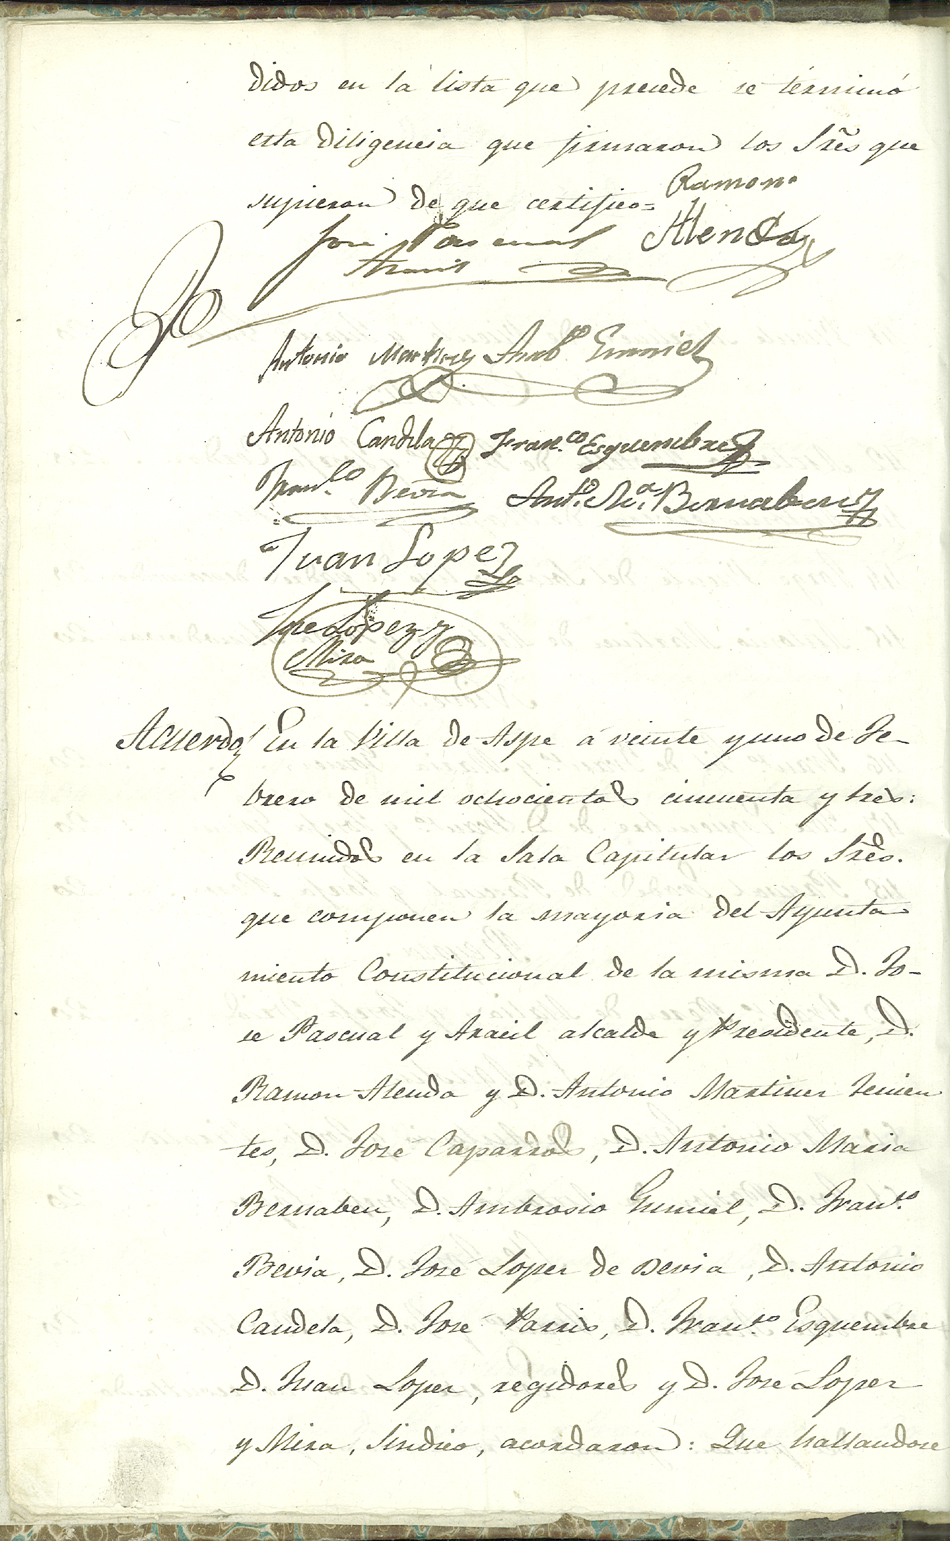 didos en la lista que precede se terminó
esta diligencia que firmaron los Sres que
supieron de que certifico=
Ramon
Alenda
José Pascual
Aracil
Antonio Martinez Ambº Gumiel
Antonio Candela Franco Esquembre
Franco Bevia Anto Ma Bernabeu
Juan Lopez
Jose Lopez y
Mira
Acuerdo/ En la Villa de Aspe á veinte y uno de Fe-
brero de mil ochocientos cincuenta y tres:
Reunidos en la Sala Capitular los Sres.
que componen la mayoria del Ayunta-
miento Constitucional de la misma D. Jo-
se Pascual y Aracil alcalde y Presidente, D.
Ramon Alenda y D. Antonio Martinez tenien
tes, D. José Caparros, D. Antonio Maria
Bernabeu, D. Ambrosio Gumiel, D. Franco
Bevia, D. José Lopez de Bevia, D. Antonio
Candela, D. José Parris, D. Franco Esquembre
D. Juan Lopez, regidores y D. José Lopez
y Mira, Sindico, acordaron: Que hallandose